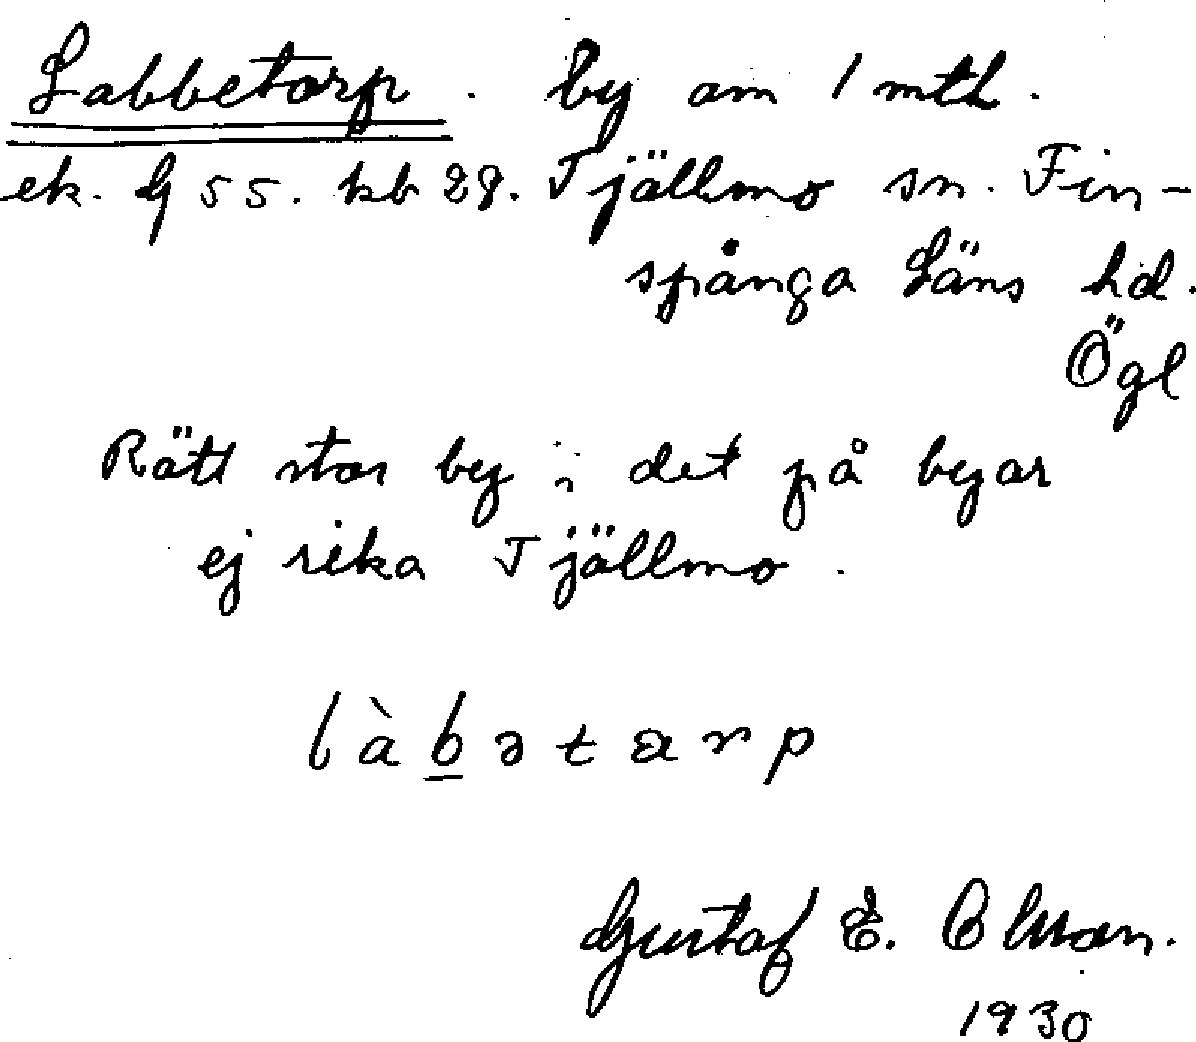 Labbetorp. by om 1 mtl.
ek. G 55. kb 28. Tjällmo sn. Fin-
spånga Läns hd.
Ögl
Rätt stor by i det på byar
ej rika Tjällmo.
làbətarp
Gustaf E. Olsson.
1930